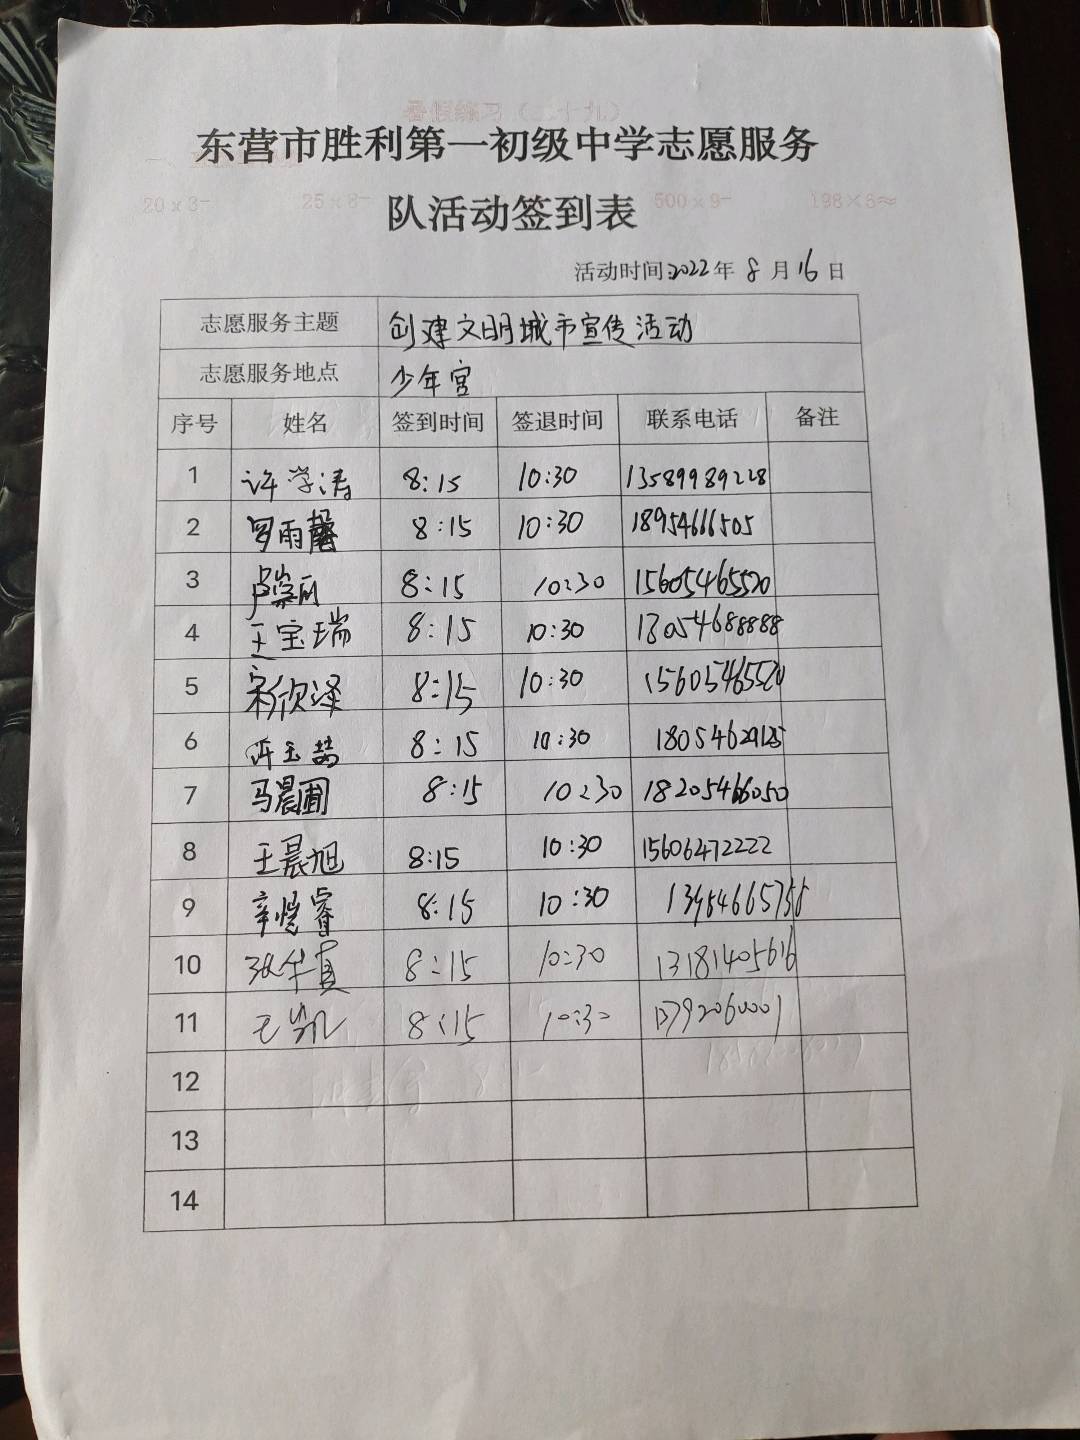 东营市胜利第一初级中学志愿服务
队活动签到表
20×3=  25×8=  500×9=  198×6≈
活动时间:2022年 8 月 16 日
志愿服务主题 创建文明城市宣传活动
志愿服务地点 少年宫
序号 姓名 签到时间 签退时间 联系电话 备注
1 许学涛 8:15 10:30 13589989228
2 罗雨馨 8:15 10:30 18954666505
3 8:15 10:30 15605465520
4 王宝瑞 8:15 10:30 18054688888
5 宋欣泽 8:15 10:30 15605465520
6 许玉喆 8:15 10:30 18054629125
7 马晨圃 8:15 10:30 18205466050
8 王晨旭 8:15 10:30 15606472222
9 辛恺睿 8:15 10:30
10 张华真 8:15 10:30 13181405616
11 王凯 8:15 10:30
12
13
14